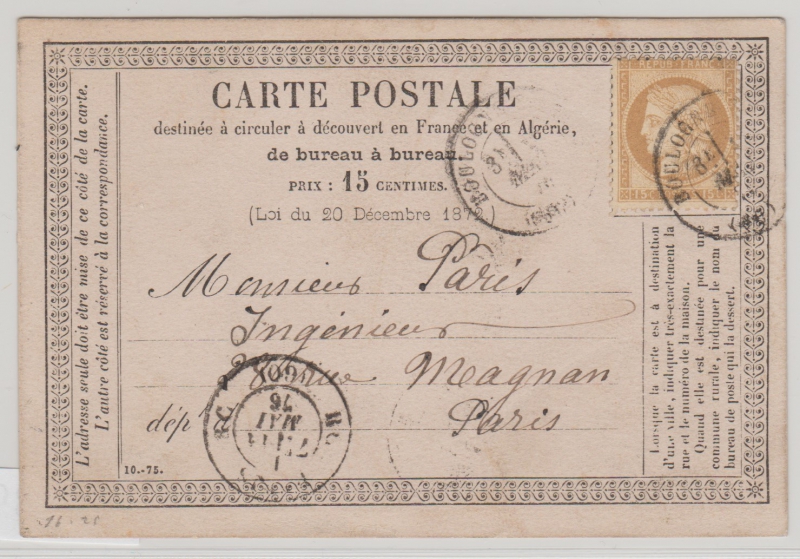 CARTE POSTALE
destinée à circuler à découvert en France et en Algérie,
de bureau à bureau.
PRIX : 15 CENTIMES.
(Loi du 20 Décembre 1872)
L'adresse seule doit être mise de ce côté de la carte.
L'autre côté est réservé à la correspondance.
REPUB FRANC
15 C 15 C
BOULOGNE
BOULOGNE
Monsieur Paris
Ingénieur
Magnan
dép Paris
MAI
76
Lorsque la carte est à destination
d'une ville, indiquer très-exactement la
rue et le numéro de la maison.
Quand elle est destinée pour une
commune rurale, indiquer le nom du
bureau de poste qui la dessert.
10.-75.